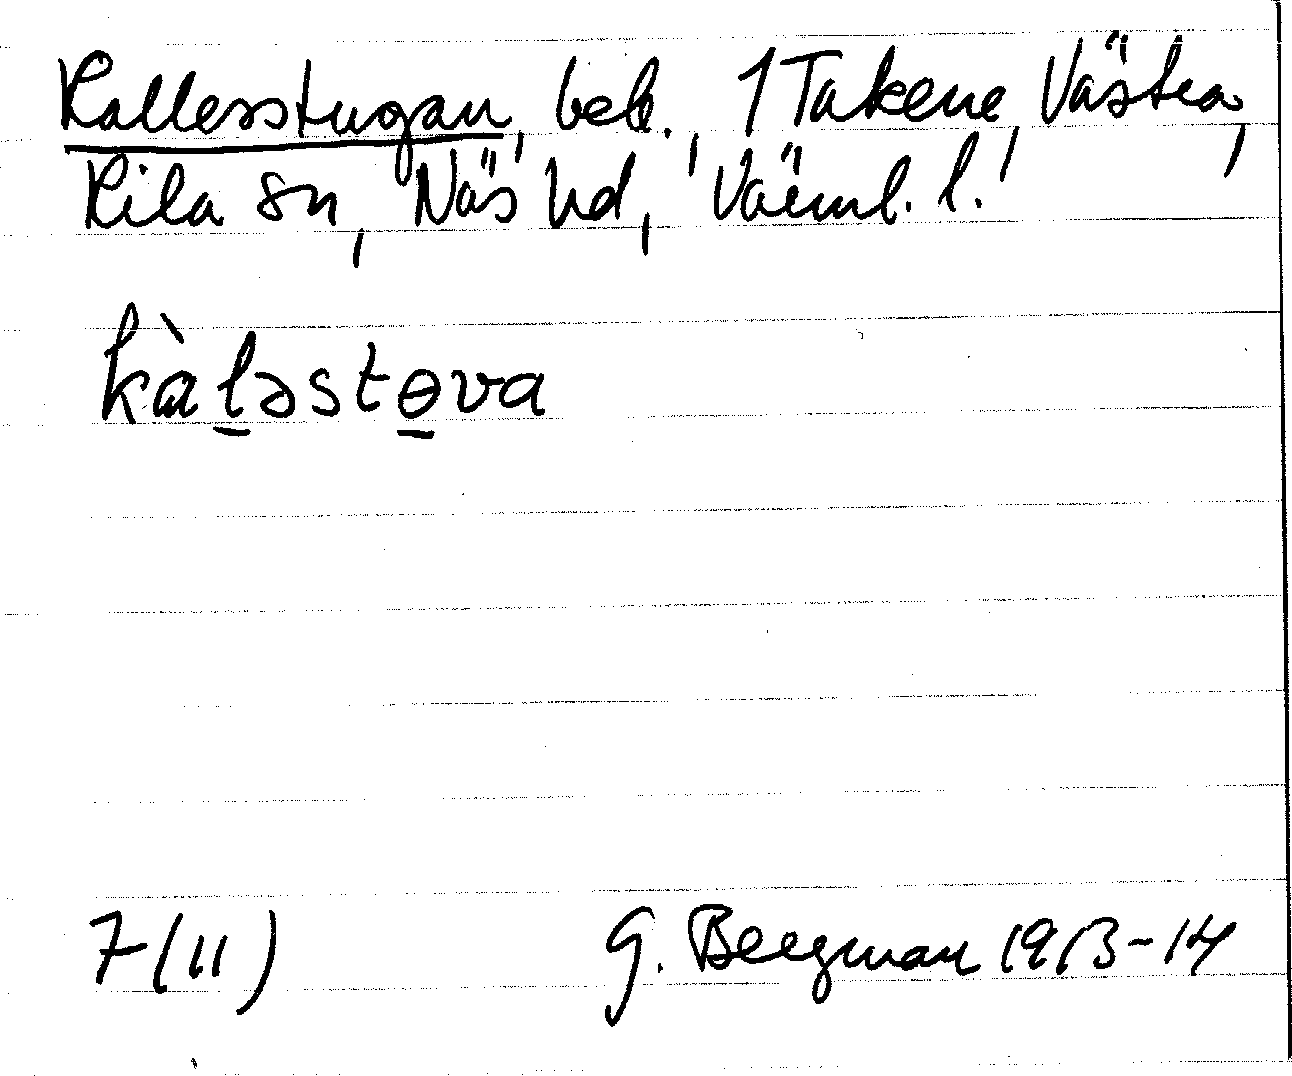 Kallesstugan, beb., 1 Takene, Västra,
Kila sn, Näs hd, Värml. l.
kàl̲əstɵ̲va
7(11) G. Bergman 1913-14